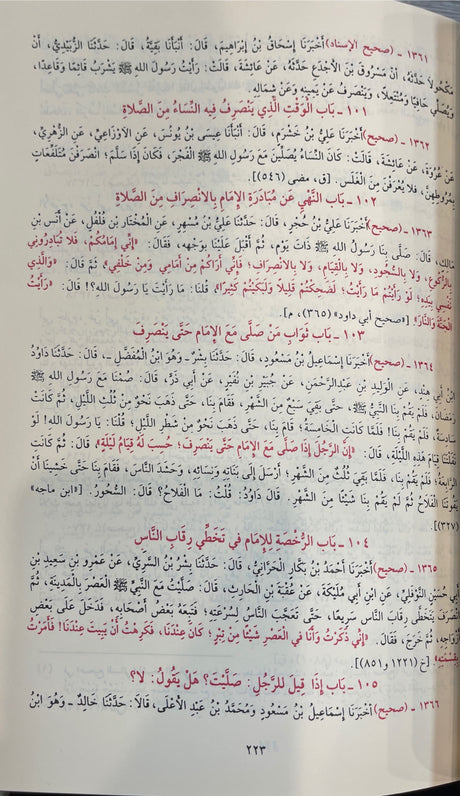 ١٣٦١ ـ (صحيح الإسناد) أَخْبَرَنَا إِسْحَاقُ بْنُ إِبْرَاهِيمَ، قَالَ: أَنْبَأَنَا بَقِيَّةُ، قَالَ: حَدَّثَنَا الزُّبَيْدِيُّ، أَنَّ
مَكْحُولًا حَدَّثَهُ، أَنَّ مَسْرُوقَ بْنَ الْأَجْدَعِ حَدَّثَهُ، عَنْ عَائِشَةَ، قَالَتْ: رَأَيْتُ رَسُولَ اللهِ ﷺ يَشْرَبُ قَائِمًا وَقَاعِدًا،
وَيُصَلِّي حَافِيًا وَمُنْتَعِلًا، وَيَنْصَرِفُ عَنْ يَمِينِهِ وَعَنْ شِمَالِهِ.
١٠١ ـ بَاب الْوَقْتِ الَّذِي يَنْصَرِفُ فِيهِ النِّسَاءُ مِنَ الصَّلَاةِ
١٣٦٢ ـ (صحيح) أَخْبَرَنَا عَلِيُّ بْنُ خَشْرَمٍ، قَالَ: أَنْبَأَنَا عِيسَى بْنُ يُونُسَ، عَنِ الْأَوْزَاعِيِّ، عَنِ الزُّهْرِيِّ،
عَنْ عُرْوَةَ، عَنْ عَائِشَةَ، قَالَتْ: كَانَ النِّسَاءُ يُصَلِّينَ مَعَ رَسُولِ اللهِ ﷺ الْفَجْرَ، فَكَانَ إِذَا سَلَّمَ؛ انْصَرَفْنَ مُتَلَفِّعَاتٍ
بِمُرُوطِهِنَّ، فَلَا يُعْرَفْنَ مِنَ الْغَلَسِ. [ق، مضى (٥٤٦)].
١٠٢ ـ بَاب النَّهْيِ عَنْ مُبَادَرَةِ الْإِمَامِ بِالِانْصِرَافِ مِنَ الصَّلَاةِ
١٣٦٣ ـ (صحيح) أَخْبَرَنَا عَلِيُّ بْنُ حُجْرٍ، قَالَ: حَدَّثَنَا عَلِيُّ بْنُ مُسْهِرٍ، عَنِ الْمُخْتَارِ بْنِ فُلْفُلٍ، عَنْ أَنَسِ بْنِ
مَالِكٍ، قَالَ: صَلَّى بِنَا رَسُولُ اللهِ ﷺ ذَاتَ يَوْمٍ، ثُمَّ أَقْبَلَ عَلَيْنَا بِوَجْهِهِ، فَقَالَ: «إِنِّي إِمَامُكُمْ، فَلَا تُبَادِرُونِي
بِالرُّكُوعِ، وَلَا بِالسُّجُودِ، وَلَا بِالْقِيَامِ، وَلَا بِالِانْصِرَافِ؛ فَإِنِّي أَرَاكُمْ مِنْ أَمَامِي وَمِنْ خَلْفِي»، ثُمَّ قَالَ: «وَالَّذِي
نَفْسِي بِيَدِهِ؛ لَوْ رَأَيْتُمْ مَا رَأَيْتُ؛ لَضَحِكْتُمْ قَلِيلًا وَلَبَكَيْتُمْ كَثِيرًا». قُلْنَا: مَا رَأَيْتَ يَا رَسُولَ اللهِ؟! قَالَ: «رَأَيْتُ
الْجَنَّةَ وَالنَّارَ». [«صحيح أبي داود» (٣٦٥)، م].
١٠٣ ـ بَاب ثَوَابِ مَنْ صَلَّى مَعَ الْإِمَامِ حَتَّى يَنْصَرِفَ
١٣٦٤ ـ (صحيح) أَخْبَرَنَا إِسْمَاعِيلُ بْنُ مَسْعُودٍ، قَالَ: حَدَّثَنَا بِشْرٌ ـ وَهُوَ ابْنُ الْمُفَضَّلِ ـ، قَالَ: حَدَّثَنَا دَاوُدُ
ابْنُ أَبِي هِنْدٍ، عَنِ الْوَلِيدِ بْنِ عَبْدِالرَّحْمَنِ، عَنْ جُبَيْرِ بْنِ نُفَيْرٍ، عَنْ أَبِي ذَرٍّ، قَالَ: صُمْنَا مَعَ رَسُولِ اللهِ ﷺ
رَمَضَانَ، فَلَمْ يَقُمْ بِنَا النَّبِيُّ ﷺ، حَتَّى بَقِيَ سَبْعٌ مِنَ الشَّهْرِ، فَقَامَ بِنَا، حَتَّى ذَهَبَ نَحْوٌ مِنْ ثُلُثِ اللَّيْلِ، ثُمَّ كَانَتْ
سَادِسَةٌ، فَلَمْ يَقُمْ بِنَا! فَلَمَّا كَانَتِ الْخَامِسَةُ؛ قَامَ بِنَا، حَتَّى ذَهَبَ نَحْوٌ مِنْ شَطْرِ اللَّيْلِ؛ قُلْنَا: يَا رَسُولَ اللهِ! لَوْ
نَفَلْتَنَا قِيَامَ هَذِهِ اللَّيْلَةِ، قَالَ: «إِنَّ الرَّجُلَ إِذَا صَلَّى مَعَ الْإِمَامِ حَتَّى يَنْصَرِفَ؛ حُسِبَ لَهُ قِيَامُ لَيْلَةٍ»، قَالَ: ثُمَّ كَانَتِ
الرَّابِعَةُ؛ فَلَمْ يَقُمْ بِنَا، فَلَمَّا بَقِيَ ثُلُثٌ مِنَ الشَّهْرِ؛ أَرْسَلَ إِلَى بَنَاتِهِ وَنِسَائِهِ، وَحَشَدَ النَّاسَ، فَقَامَ بِنَا حَتَّى خَشِينَا أَنْ
يَفُوتَنَا الْفَلَاحُ ثُمَّ لَمْ يَقُمْ بِنَا شَيْئًا مِنَ الشَّهْرِ. قَالَ دَاوُدُ: قُلْتُ: مَا الْفَلَاحُ؟ قَالَ: السُّحُورُ. [«ابن ماجه»
(٣٢٧)].
١٠٤ ـ بَاب الرُّخْصَةِ لِلْإِمَامِ فِي تَخَطِّي رِقَابِ النَّاسِ
١٣٦٥ ـ (صحيح) أَخْبَرَنَا أَحْمَدُ بْنُ بَكَّارٍ الْحَرَّانِيُّ، قَالَ: حَدَّثَنَا بِشْرُ بْنُ السَّرِيِّ، عَنْ عُمَرَ بْنِ سَعِيدِ بْنِ
أَبِي حُسَيْنٍ النَّوْفَلِيِّ، عَنِ ابْنِ أَبِي مُلَيْكَةَ، عَنْ عُقْبَةَ بْنِ الْحَارِثِ، قَالَ: صَلَّيْتُ مَعَ النَّبِيِّ ﷺ الْعَصْرَ بِالْمَدِينَةِ، ثُمَّ
انْصَرَفَ يَتَخَطَّى رِقَابَ النَّاسِ سَرِيعًا، حَتَّى تَعَجَّبَ النَّاسُ لِسُرْعَتِهِ؛ فَتَبِعَهُ بَعْضُ أَصْحَابِهِ، فَدَخَلَ عَلَى بَعْضِ
أَزْوَاجِهِ، ثُمَّ خَرَجَ، فَقَالَ: «إِنِّي ذَكَرْتُ وَأَنَا فِي الْعَصْرِ شَيْئًا مِنْ تِبْرٍ؛ كَانَ عِنْدَنَا، فَكَرِهْتُ أَنْ يَبِيتَ عِنْدَنَا! فَأَمَرْتُ
بِقِسْمَتِهِ» [خ (١٢٢١ و٨٥١)].
١٠٥ ـ بَاب إِذَا قِيلَ لِلرَّجُلِ: صَلَّيْتَ؟ هَلْ يَقُولُ: لَا؟
١٣٦٦ ـ (صحيح) أَخْبَرَنَا إِسْمَاعِيلُ بْنُ مَسْعُودٍ وَمُحَمَّدُ بْنُ عَبْدِ الْأَعْلَى، قَالَا: حَدَّثَنَا خَالِدٌ ـ وَهُوَ ابْنُ
٢٢٣